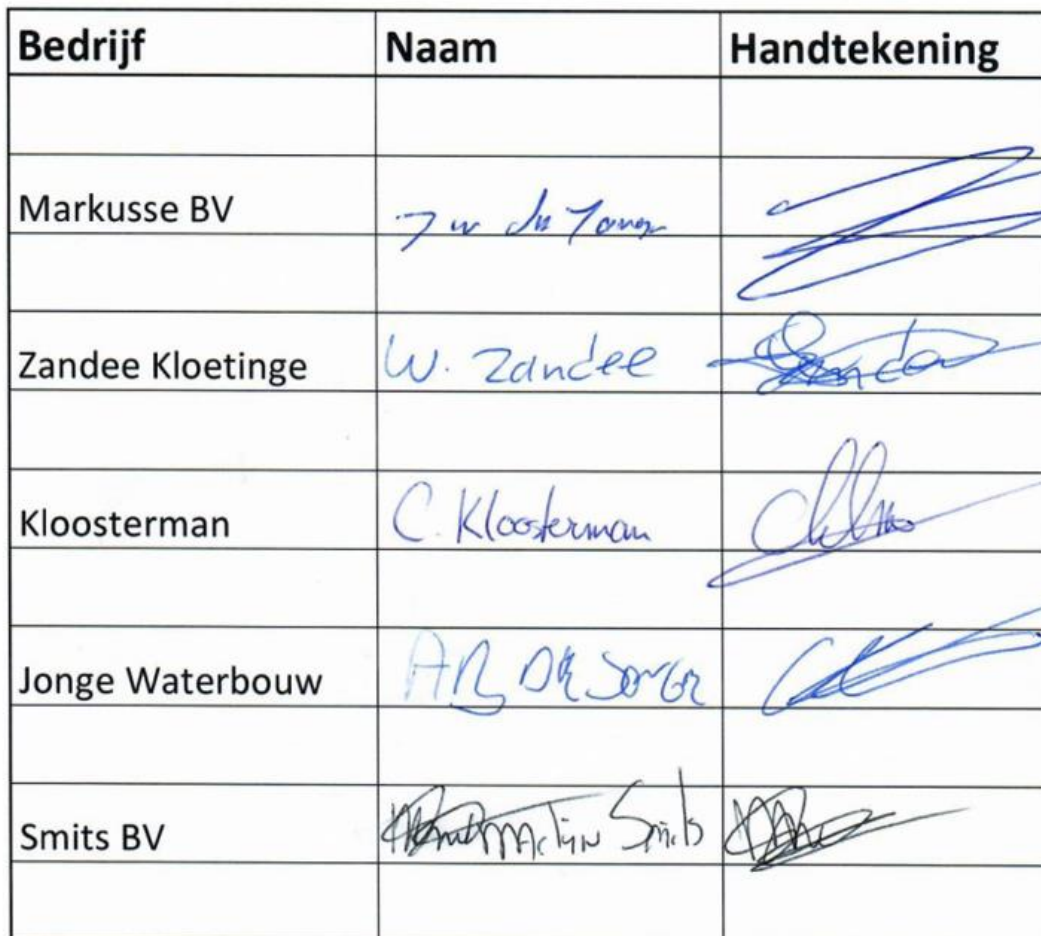 Bedrijf Naam Handtekening
Markusse BV
Zandee Kloetinge W. Zandee
Kloosterman C. Kloosterman
Jonge Waterbouw AB DE JONGE
Smits BV Smits